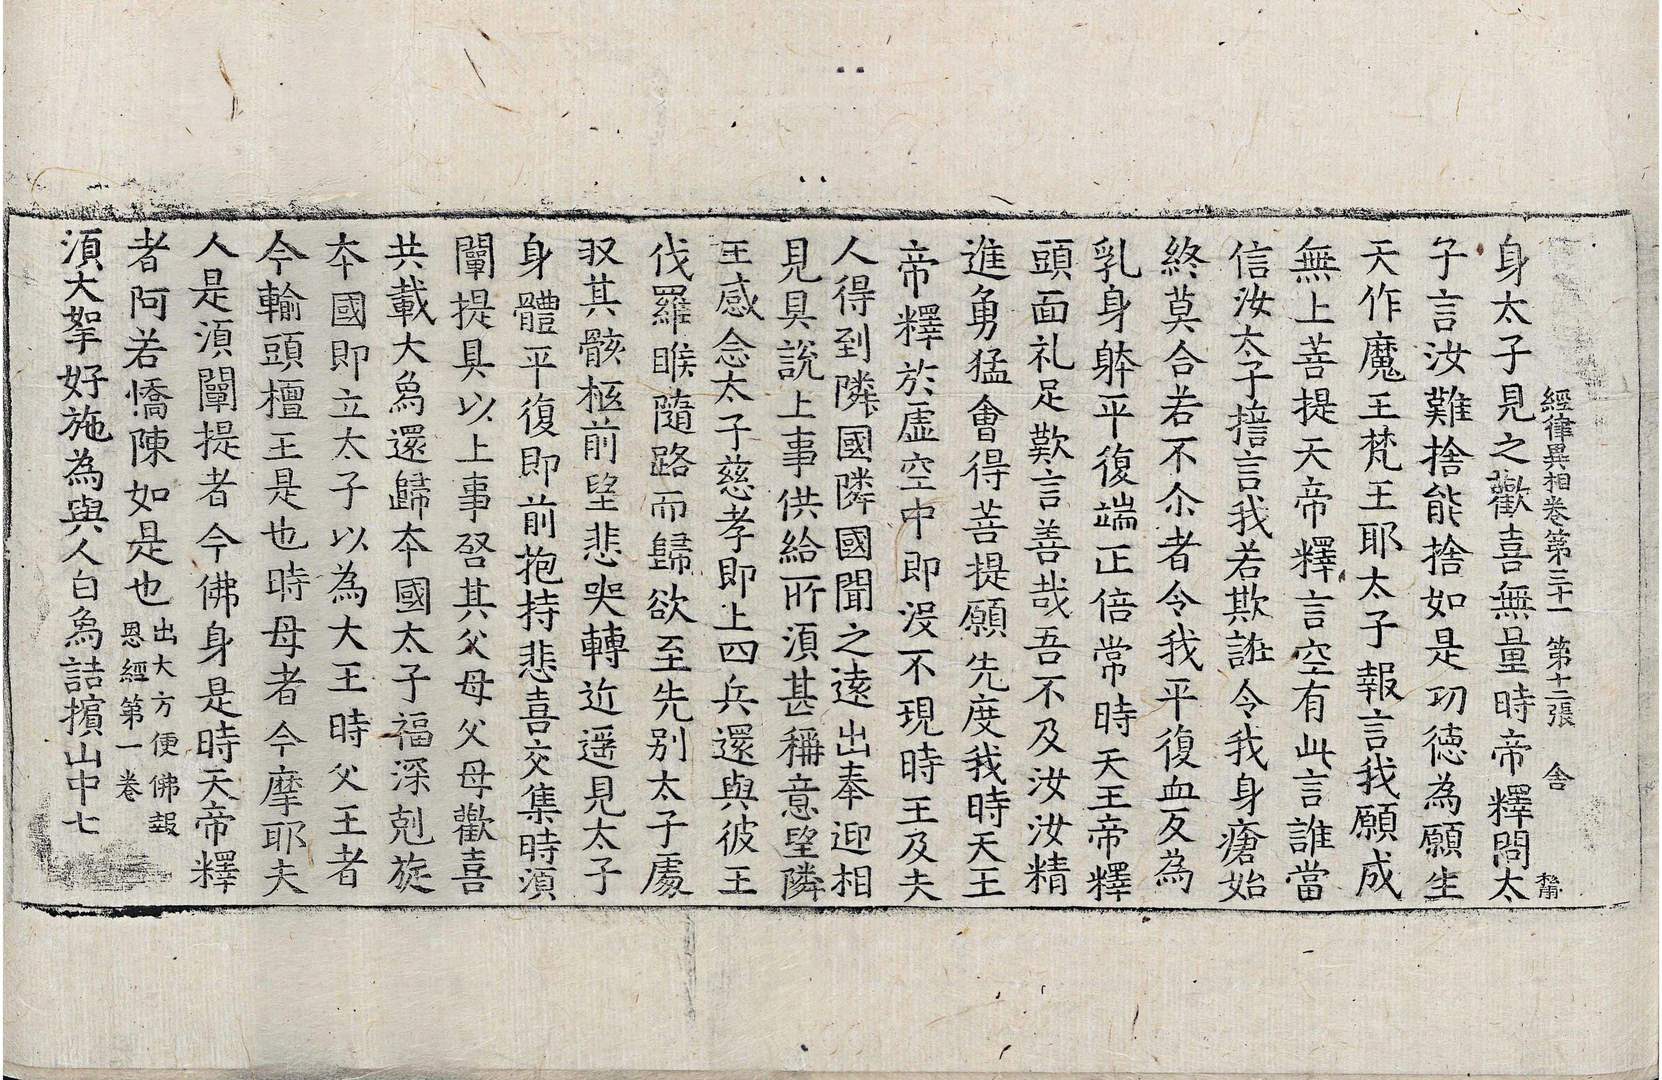 經律異相卷第三十一 第十二張 舍
身太子見之歡喜無量時帝釋問太
子言汝難捨能捨如是功德為願生
天作魔王梵王耶太子報言我願成
無上菩提天帝釋言空有此言誰當
信汝太子擔言我若欺誑令我身瘡始
終莫合若不尒者令我平復血反為
乳身躰平復端正倍常時天王帝釋
頭面礼足歎言善哉吾不及汝汝精
進勇猛會得菩提願先度我時天王
帝釋於虛空中即沒不現時王及夫
人得到隣國隣國聞之遠出奉迎相
見具說上事供給所湏甚稱意望隣
王感念太子慈孝即上四兵還與彼王
伐羅睺隨路而歸欲至先別太子處
収其骸柩前望悲哭轉近遥見太子
身體平復即前抱持悲喜交集時湏
闡提具以上事啓其父母父母歡喜
共載大象還歸夲國太子福深剋㫌
夲國即立太子以為大王時父王者
今輸頭檀王是也時母者今摩耶夫
人是湏闡提者今佛身是時天帝釋
者阿若憍陳如是也 出大方便佛報
恩經第一卷
湏大拏好施為與人白象詰擯山中七